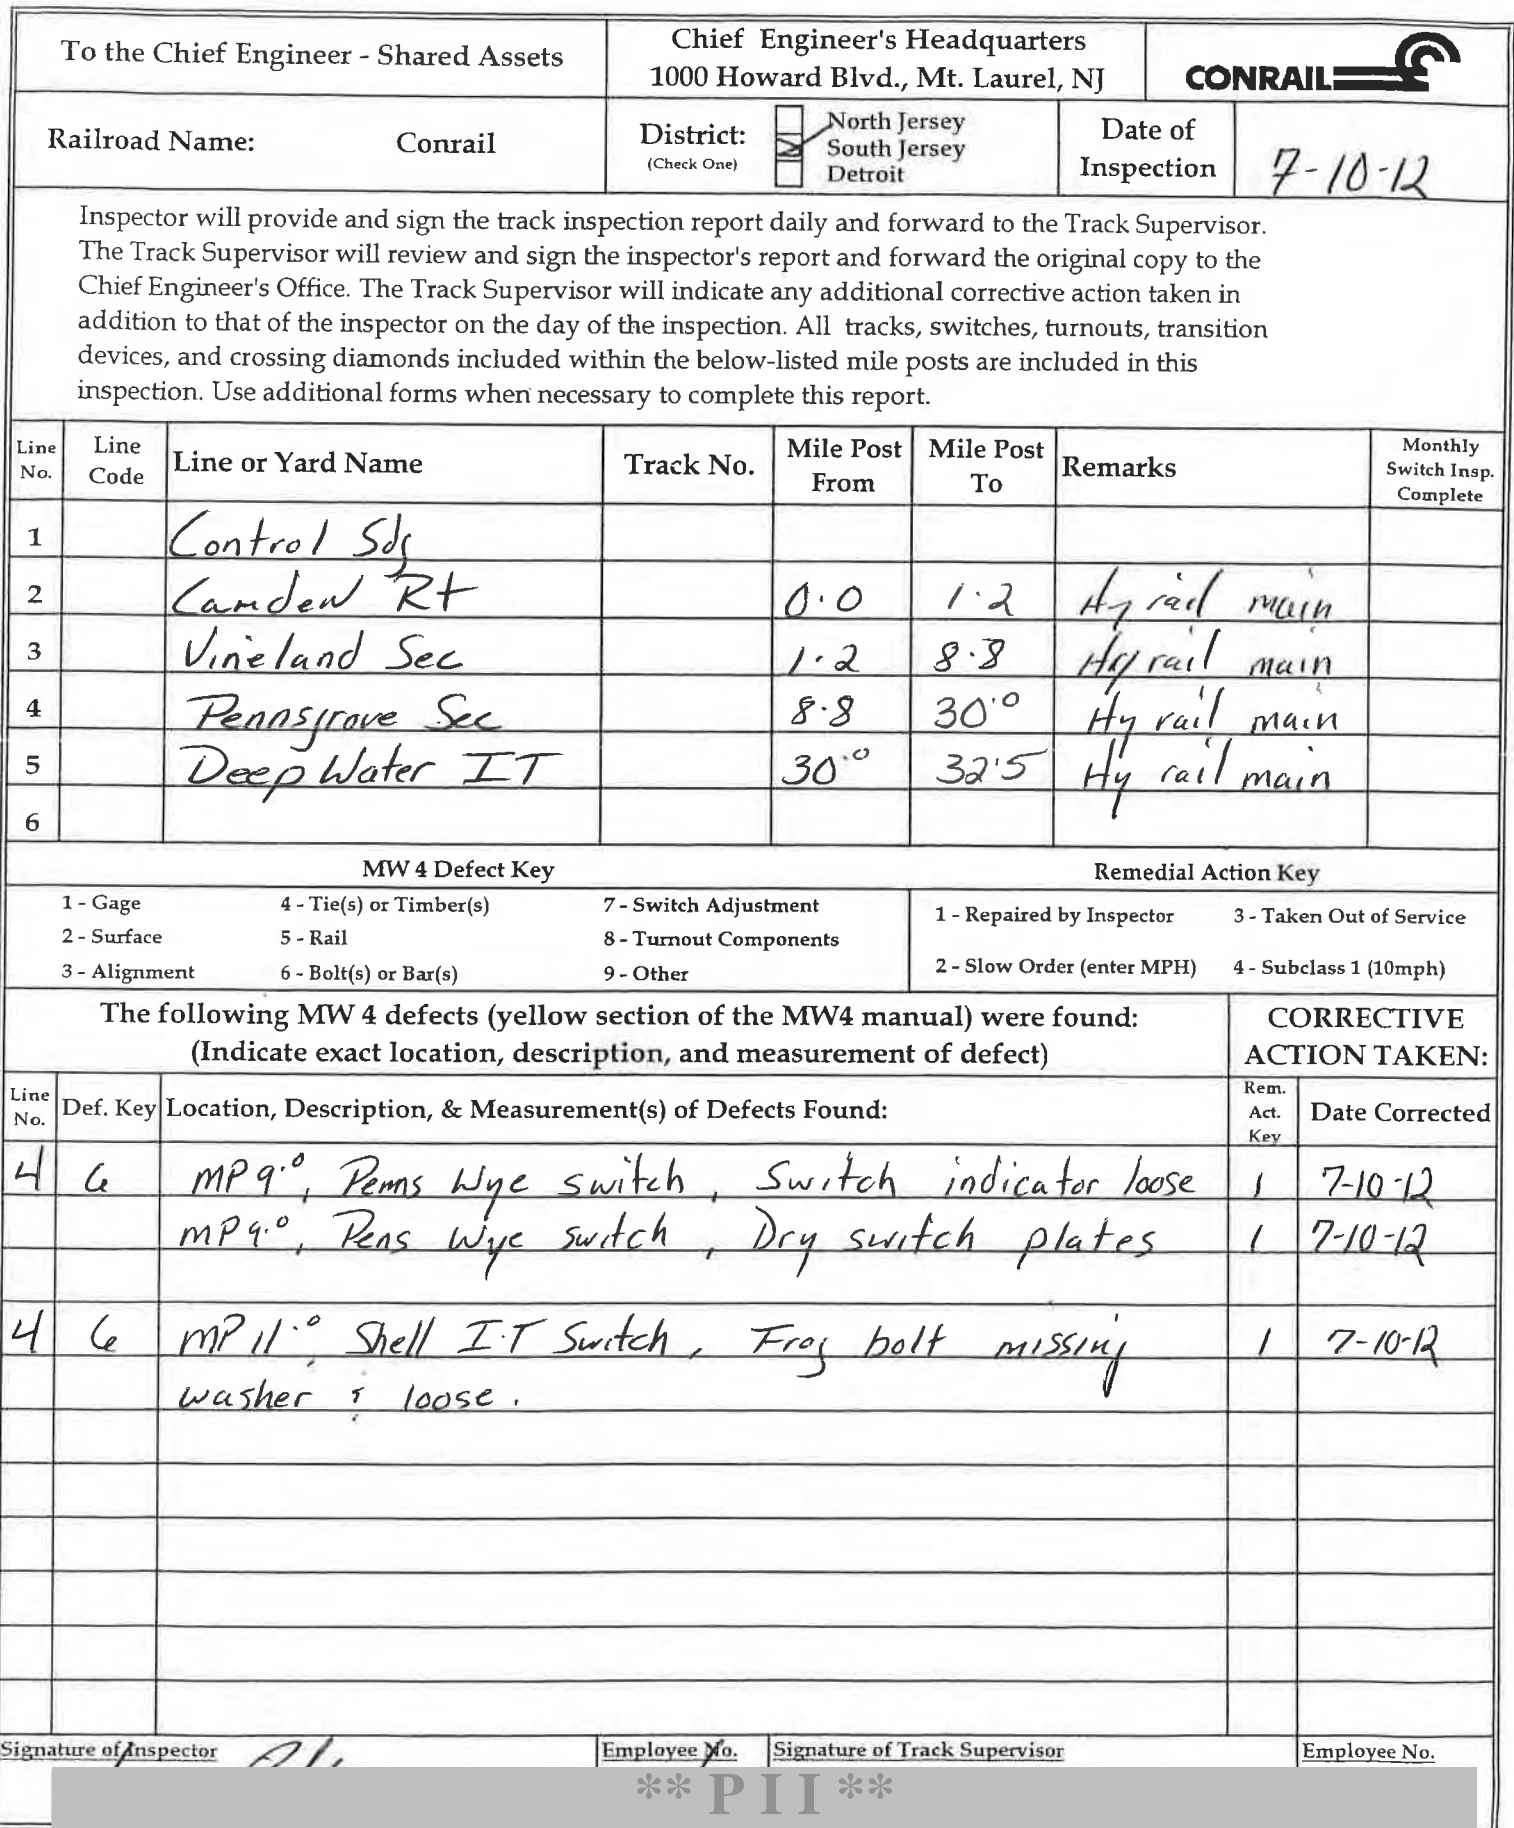 To the Chief Engineer - Shared Assets
Chief Engineer's Headquarters
1000 Howard Blvd., Mt. Laurel, NJ
CONRAIL
Railroad Name: Conrail
District:
(Check One)
North Jersey
South Jersey
Detroit
Date of
Inspection
7-10-12
Inspector will provide and sign the track inspection report daily and forward to the Track Supervisor.
The Track Supervisor will review and sign the inspector's report and forward the original copy to the
Chief Engineer's Office. The Track Supervisor will indicate any additional corrective action taken in
addition to that of the inspector on the day of the inspection. All tracks, switches, turnouts, transition
devices, and crossing diamonds included within the below-listed mile posts are included in this
inspection. Use additional forms when necessary to complete this report.
Line No. Line Code Line or Yard Name Track No. Mile Post From Mile Post To Remarks Monthly Switch Insp. Complete
1 Control Sdg
2 Camden Rt 0.0 1.2 Hy rail main
3 Vineland Sec 1.2 8.8 Hy rail main
4 Pennsgrove Sec 8.8 30.0 Hy rail main
5 Deep Water IT 30.0 32.5 Hy rail main
6
MW 4 Defect Key
1 - Gage 4 - Tie(s) or Timber(s) 7 - Switch Adjustment
2 - Surface 5 - Rail 8 - Turnout Components
3 - Alignment 6 - Bolt(s) or Bar(s) 9 - Other
Remedial Action Key
1 - Repaired by Inspector 3 - Taken Out of Service
2 - Slow Order (enter MPH) 4 - Subclass 1 (10mph)
The following MW 4 defects (yellow section of the MW4 manual) were found:
(Indicate exact location, description, and measurement of defect)
CORRECTIVE
ACTION TAKEN:
Line No. Def. Key Location, Description, & Measurement(s) of Defects Found: Rem. Act. Key Date Corrected
4 6 MP 9.0, Penns Wye switch, Switch indicator loose 1 7-10-12
MP 9.0, Pens Wye switch, Dry switch plates 1 7-10-12
4 6 MP 11.0 Shell I.T Switch, Frog bolt missing 1 7-10-12
washer & loose.
Signature of Inspector Employee No. Signature of Track Supervisor Employee No.
** P I I **